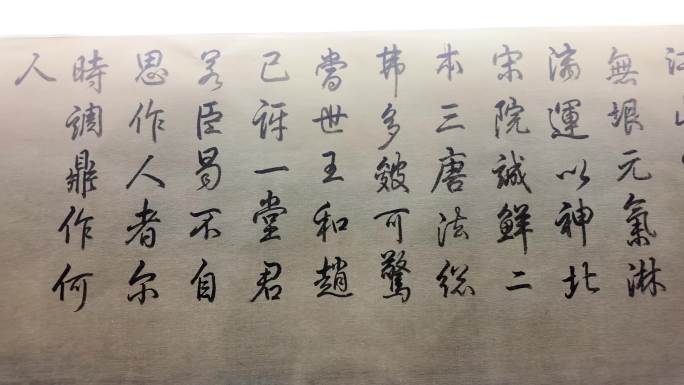 無垠元氣淋
漓運以神北
宋院誠鮮二
本三唐法総
弗多皴可驚
當世王和趙
已訝一堂君
若臣曷不自
思作人者尔
時調鼎作何
人